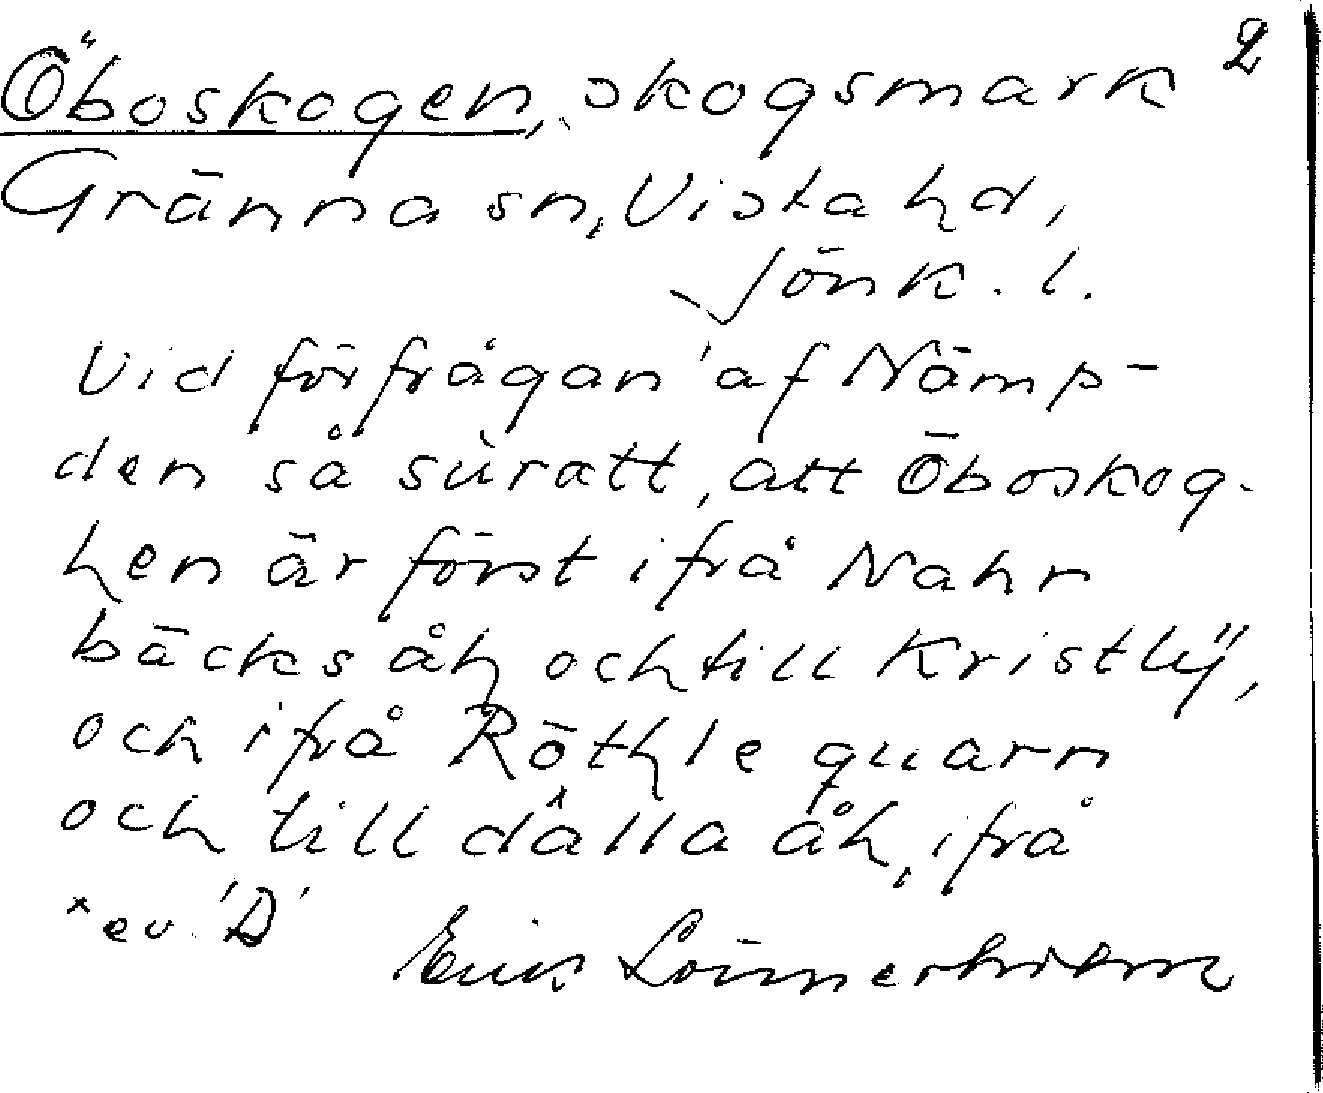 2
Öboskogen, skogsmark
Gränna sn, Vista hd,
Jönk. l.
Vid förfrågan af Nämp-
den så sùratt, att Öboskog-
hen är först ifrå Nahr
bäcks åh och till Kristlÿ,
och ifrå Röthle quarn
och till dålla åh, ifrå
x ev. 'D'
Erik Lönnerholm